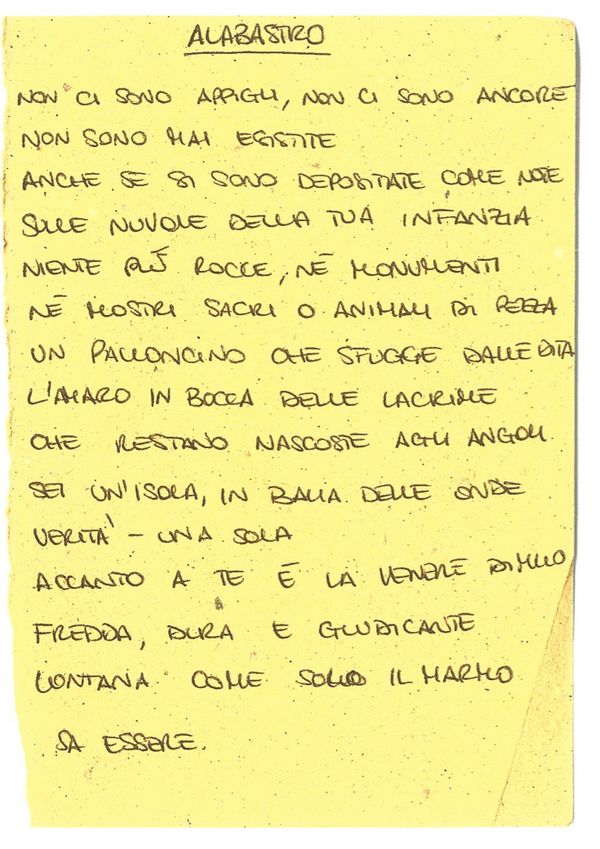 ALABASTRO
NON CI SONO APPIGLI, NON CI SONO ANCORE
NON SONO MAI ESISTITE
ANCHE SE SI SONO DEPOSITATE COME NOTE
SULLE NUVOLE DELLA TUA INFANZIA
NIENTE PIÙ ROCCE, NÉ MONUMENTI
NÉ MOSTRI SACRI O ANIMALI DI PEZZA
UN PALLONCINO CHE SFUGGE DALLE DITA
L'AMARO IN BOCCA DELLE LACRIME
CHE RESTANO NASCOSTE AGLI ANGOLI
SEI UN'ISOLA, IN BALIA DELLE ONDE
VERITÀ - UNA SOLA
ACCANTO A TE È LA VENERE DI MILO
FREDDA, DURA E GIUDICANTE
LONTANA COME SOLO IL MARMO
SA ESSERE.